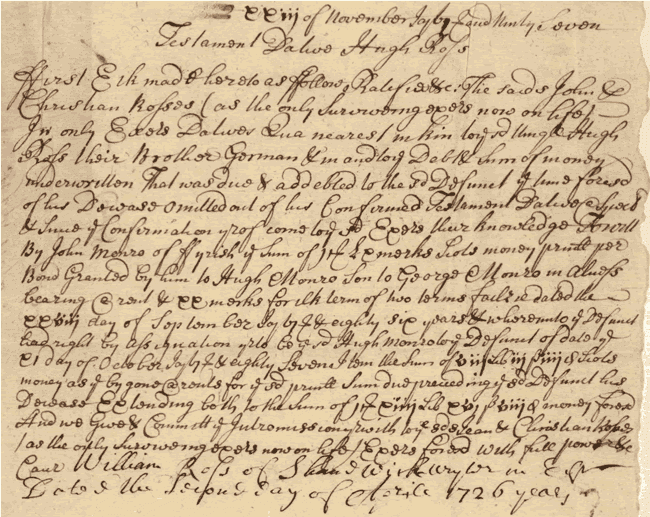 xxiij of November Jajvj & and Ninty Seven
Testament Dative Hugh Ross
ffirst Eik made hereto as ffollows Ratifies &c: The saids John &
Christian Rosses (as the only Surviveing exers now on life)
only Exers Datives Qua nearest in kin to ye sd Hugh
Ross their Brother German & in and to ye Debt & Sum of money
underwritten That was due & addebted to the sd Defunct ye time foresd
of his Decease omitted out of his Confirmed Testament Dative
& Since ye Confirmation yrof come to ye sd Exers their knowledge To witt
By John Monro of ffyrish ye Sum of merks Scots money prinll per
Bond Granted by him to Hugh Monro Son to George Monro in Alness
bearing @rent & xx merks for ilk term of two terms failzie dated the
xxviij day of September Jajvj & eighty six years & whereunto ye Defunct
had right by assignation yrto be ye sd Hugh Monro to ye Defunct of date ye
xj day of October Jajvj & eighty Seven Item the Sum of Scots
money as ye bygone @rents for ye sd prinll Sum due preceeding ye sd Defunct his
Decease Extending both to the Sum of money foresd
And we Give & Committ ye Intromission yrwith to ye sds Jean & Christian Rosses
(as the only Surviveing exers now on life) Exers foresd with full power &c
Caur William Ross of Shandwick wryter in
Dated the Second day of Aprile 1726 years